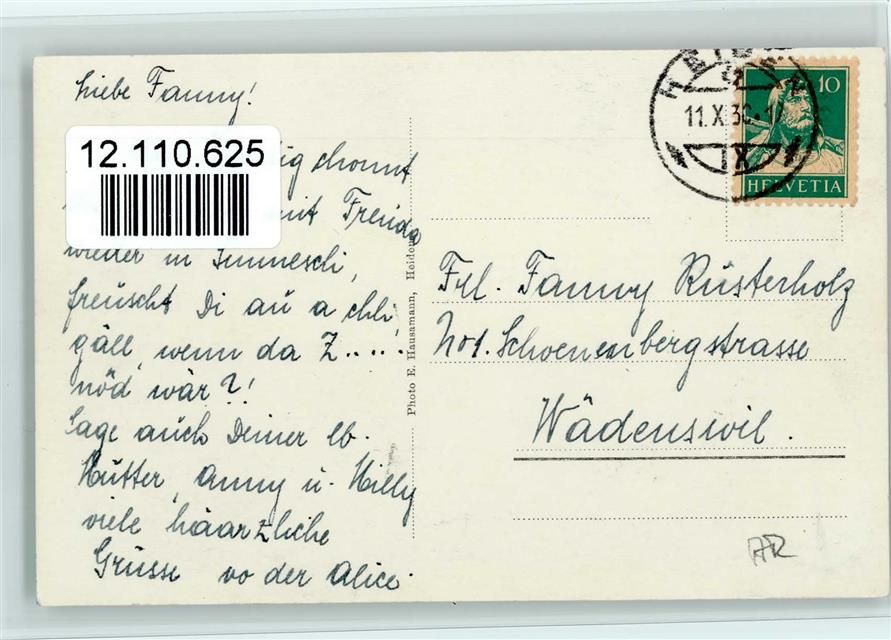 Liebe Fanny!
12.110.625
ig chonnt
mit Freuda
wieder in
freuscht Di au a chli,
gäll, wenn da Z.....
nöd wär?!
Sage auch Deiner lb.
Mutter, Anny u. Willy
viele häarzliche
Grüsse vo der Alice.
Photo E. Hausamann, Heiden
HEID
11.X.30.-1
X
10
HELVETIA
Frl. Fanny Rüsterholz
Schoenenbergstrasse
Wädenswil.
AR